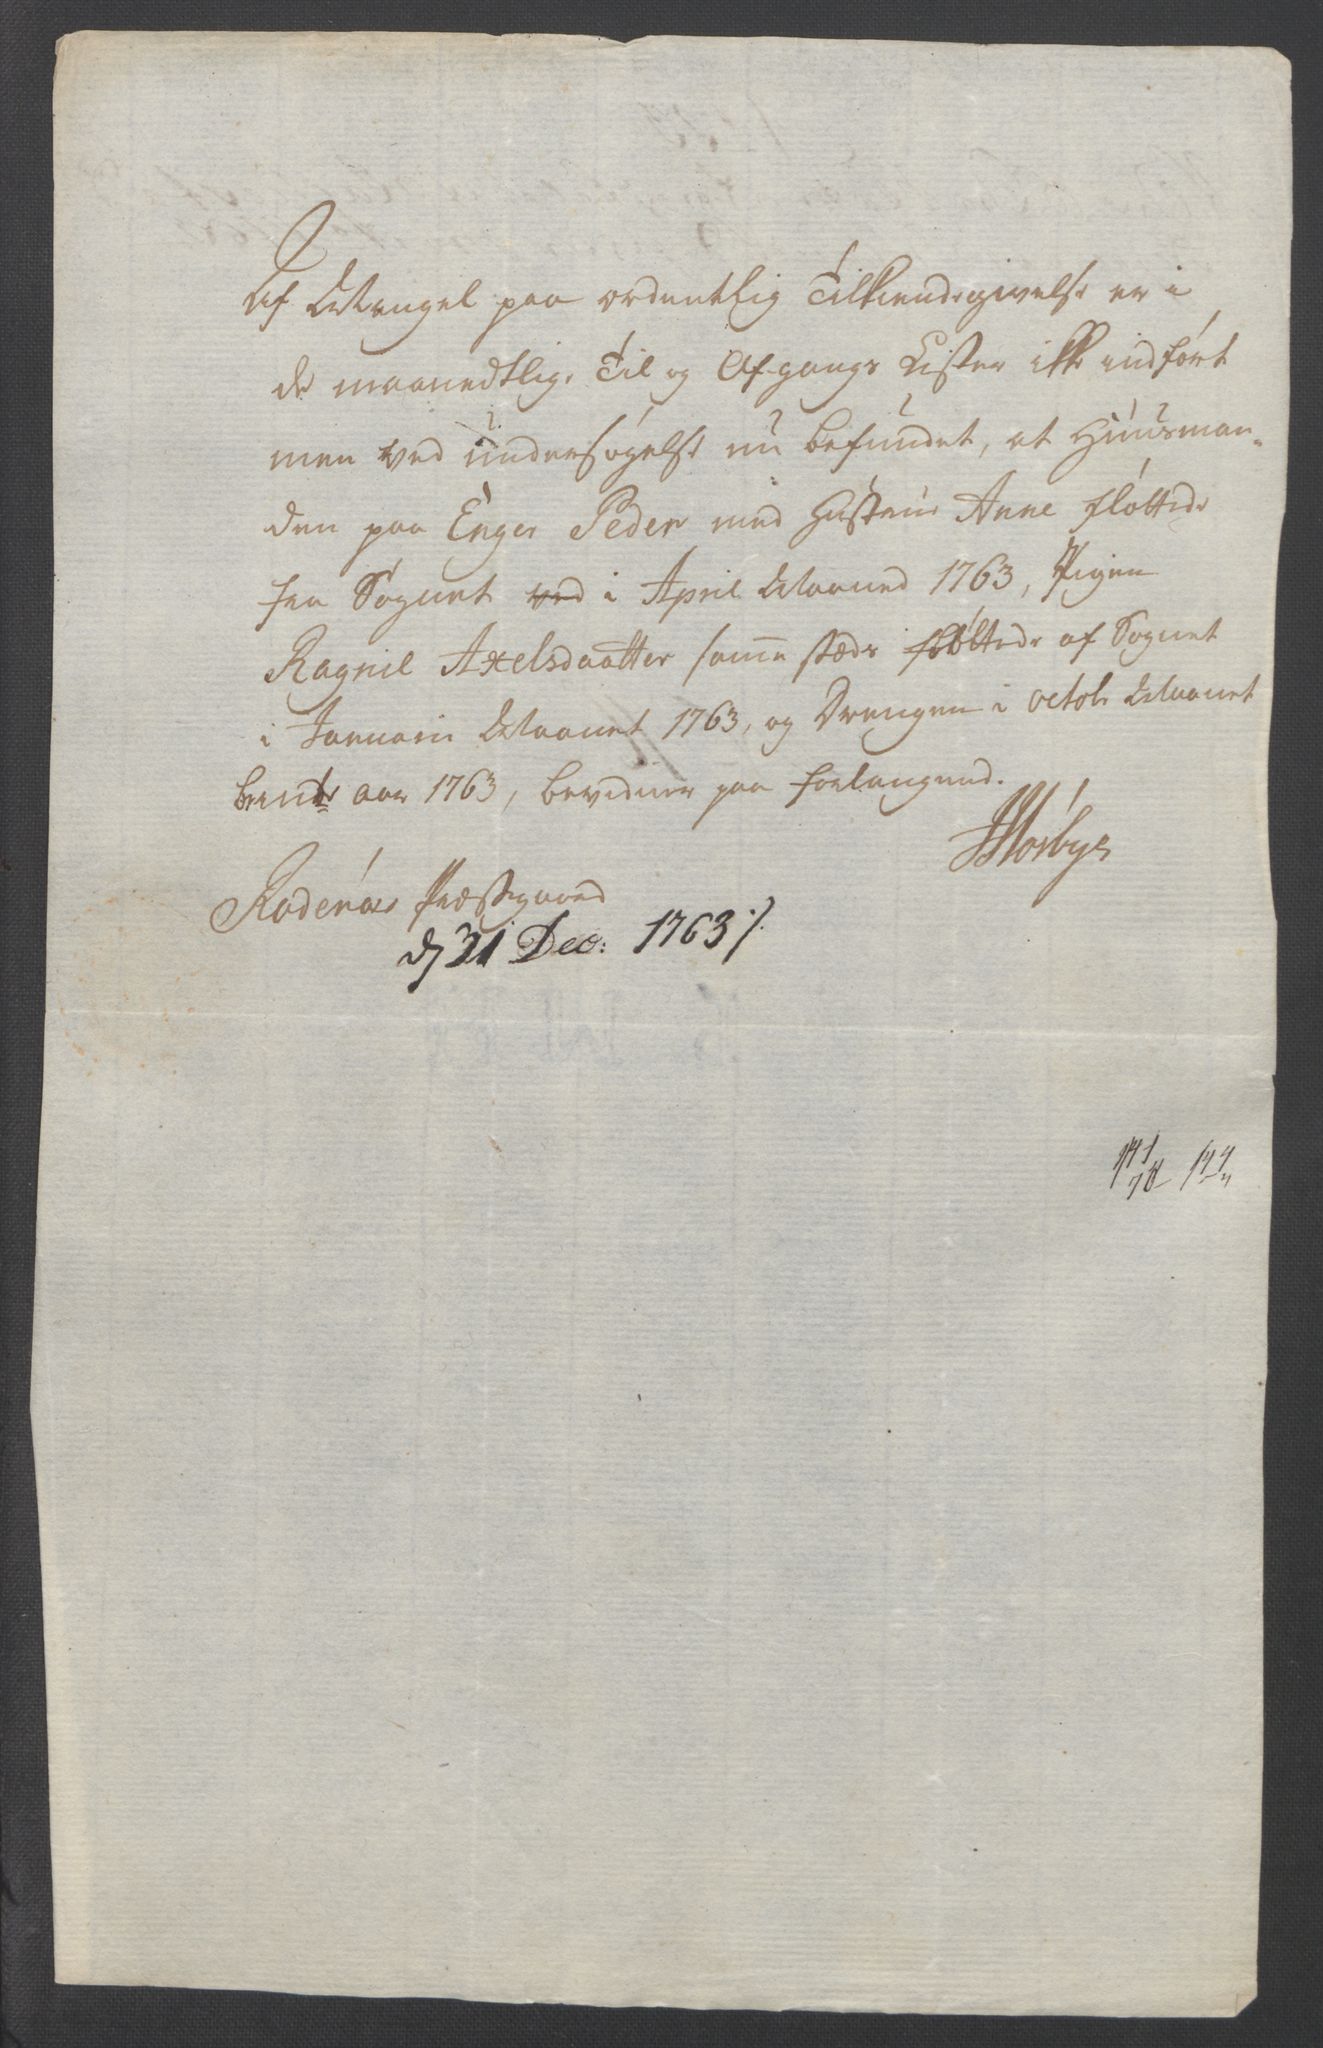 Af Mangel paa ordentlig Tilkiendegivelse er i
de maanedtlige Til og Afgangs Lister ikke indført
men ved undersøgelse nu befundet, at Huusman-
den paa Enger Peder med Hustrue Anne fløttede
fra Sognet ved i April Maaned 1763, Pigen
Ragnil Axelsdaatter samme stæds fløttede af Sognet
i Januarii Maanet 1763, og Drengen i octob: Maanet
aar 1763, bevidner paa forlangend.
Rodenæs Præstegaard
d 31 Dec: 1763